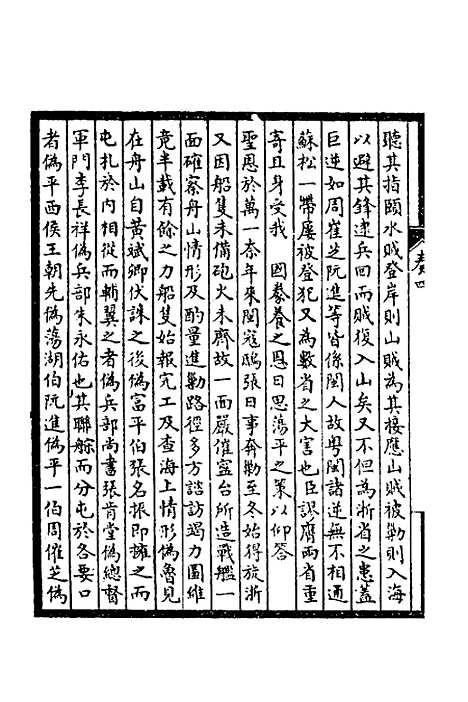 聽其指頤水賊登岸則山賊為其接應山賊被勦則入海
以避其鋒逮兵回而賊復入山矣又不但為浙省之患蓋
巨逆如周崔芝阮進等皆係閩人故粤閩諸逆無不相通
蘇松一帶屢被登犯又為數省之大害也臣謬膺兩省重
寄且身受我 國豢養之恩日思蕩平之策以仰答
聖恩於萬一奈年來閩寇鴟張日事奔勦至冬始得旋浙
又因船隻未備砲火未齊故一面嚴催寧台所造戰艦一
面確察舟山情形及酌量進勦路徑多方諮訪竭力圖維
竟半載有餘之力船隻始報完工及查海上情形偽魯見
在舟山自黃斌卿伏誅之後偽富平伯張名振即擁之而
屯扎於內相從而輔翼之者偽兵部尚書張肯堂偽總督
軍門李長祥偽兵部朱永佑也其聯䑸而分屯於各要口
者偽平西侯王朝先偽蕩湖伯阮進偽平一伯周傕芝偽
卷四